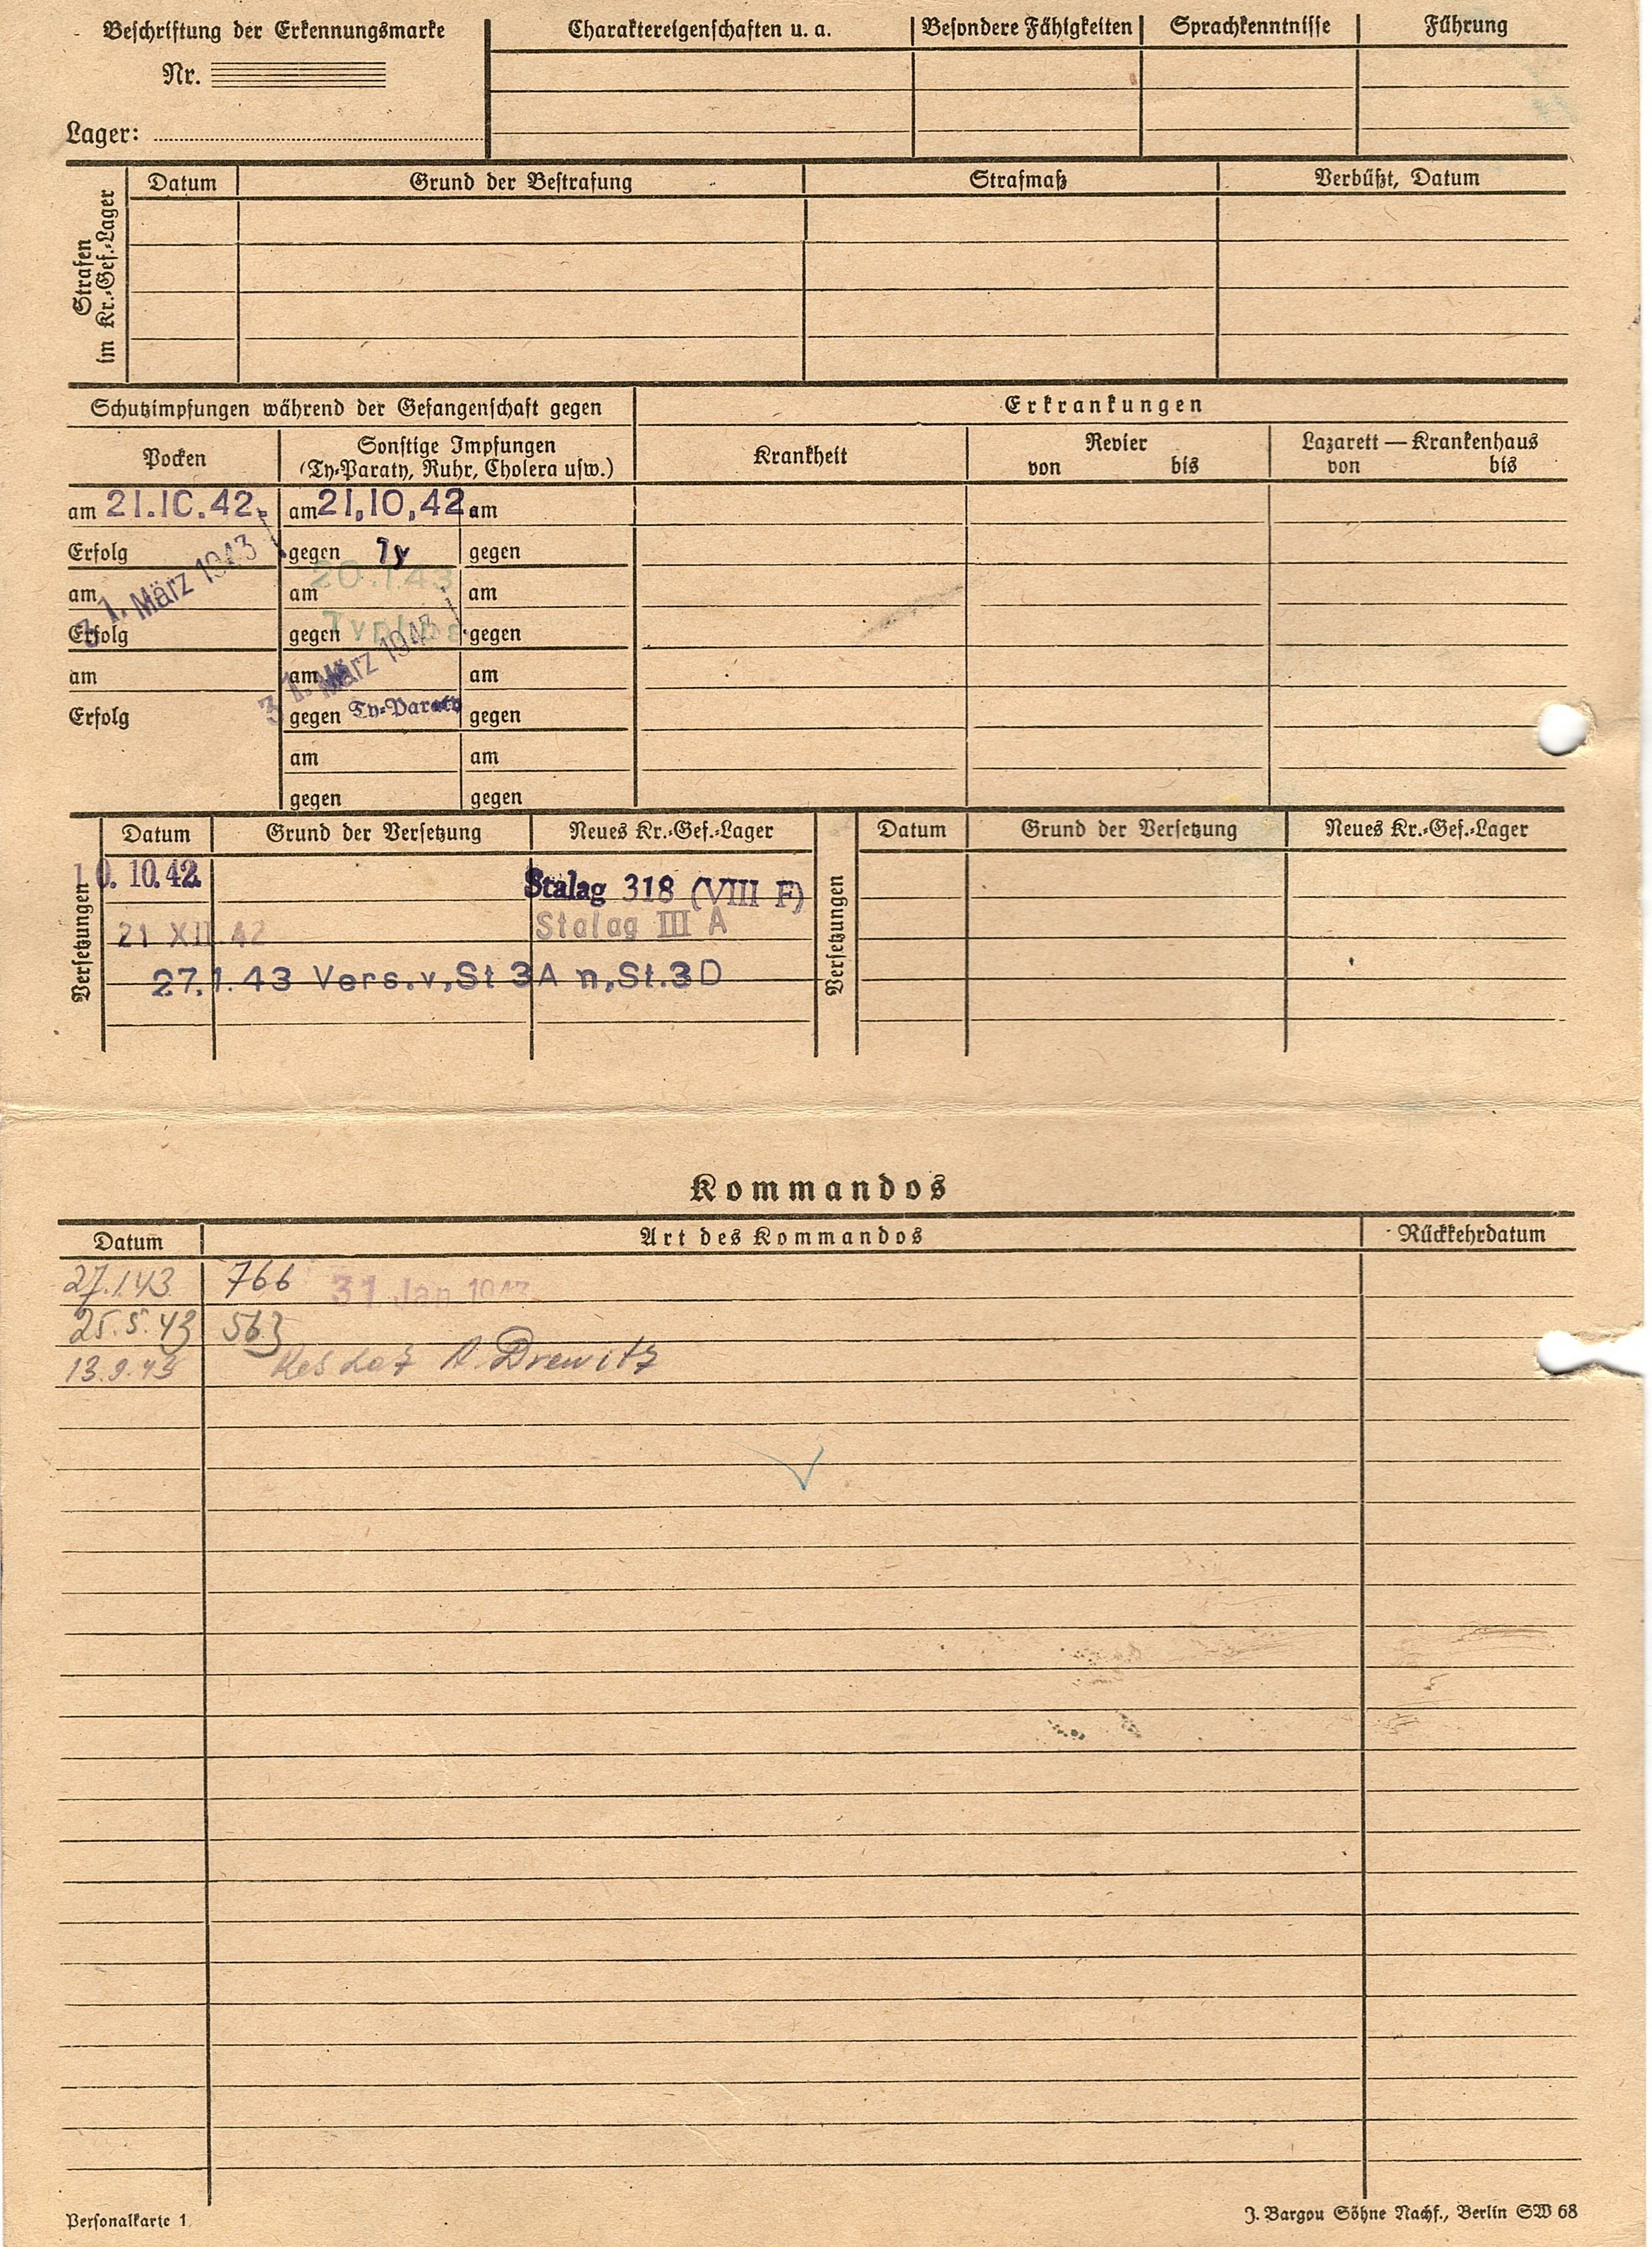 Beschriftung der Erkennungsmarke
Nr.
Lager:
Charaktereigenschaften u. a.
Besondere Fähigkeiten
Sprachkenntnisse
Führung
Strafen
im Kr.-Gef.-Lager
Datum
Grund der Bestrafung
Strafmaß
Verbüßt, Datum
Schutzimpfungen während der Gefangenschaft gegen
Erkrankungen
Pocken
Sonstige Impfungen
(Ty-Paraty, Ruhr, Cholera usw.)
Krankheit
Revier
von bis
Lazarett — Krankenhaus
von bis
am 21.10.42. am 21.10.42 am
Erfolg gegen Ty gegen
am 31. März 1943 am 20.1.43 am
Erfolg gegen Typhus gegen
am am 31. März 1943 am
Erfolg gegen Ty-Paraty gegen
am am
gegen gegen
Versetzungen
Datum Grund der Versetzung Neues Kr.-Gef.-Lager
10. 10. 42. Stalag 318 (VIII F)
21 XII 42 Stalag III A
27.1.43 Vers.v.St 3A n.St.3D
Versetzungen
Datum Grund der Versetzung Neues Kr.-Gef.-Lager
Kommandos
Datum Art des Kommandos Rückkehrdatum
27.1.43 766 31. Jan 1943
25.5.43 563
13.9.43 Res Laz A. Drewitz
Personalkarte 1
J. Bargou Söhne Nachf., Berlin SW 68